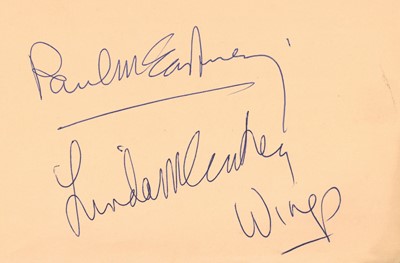 Paul McCartney
Linda McCartney
Wings